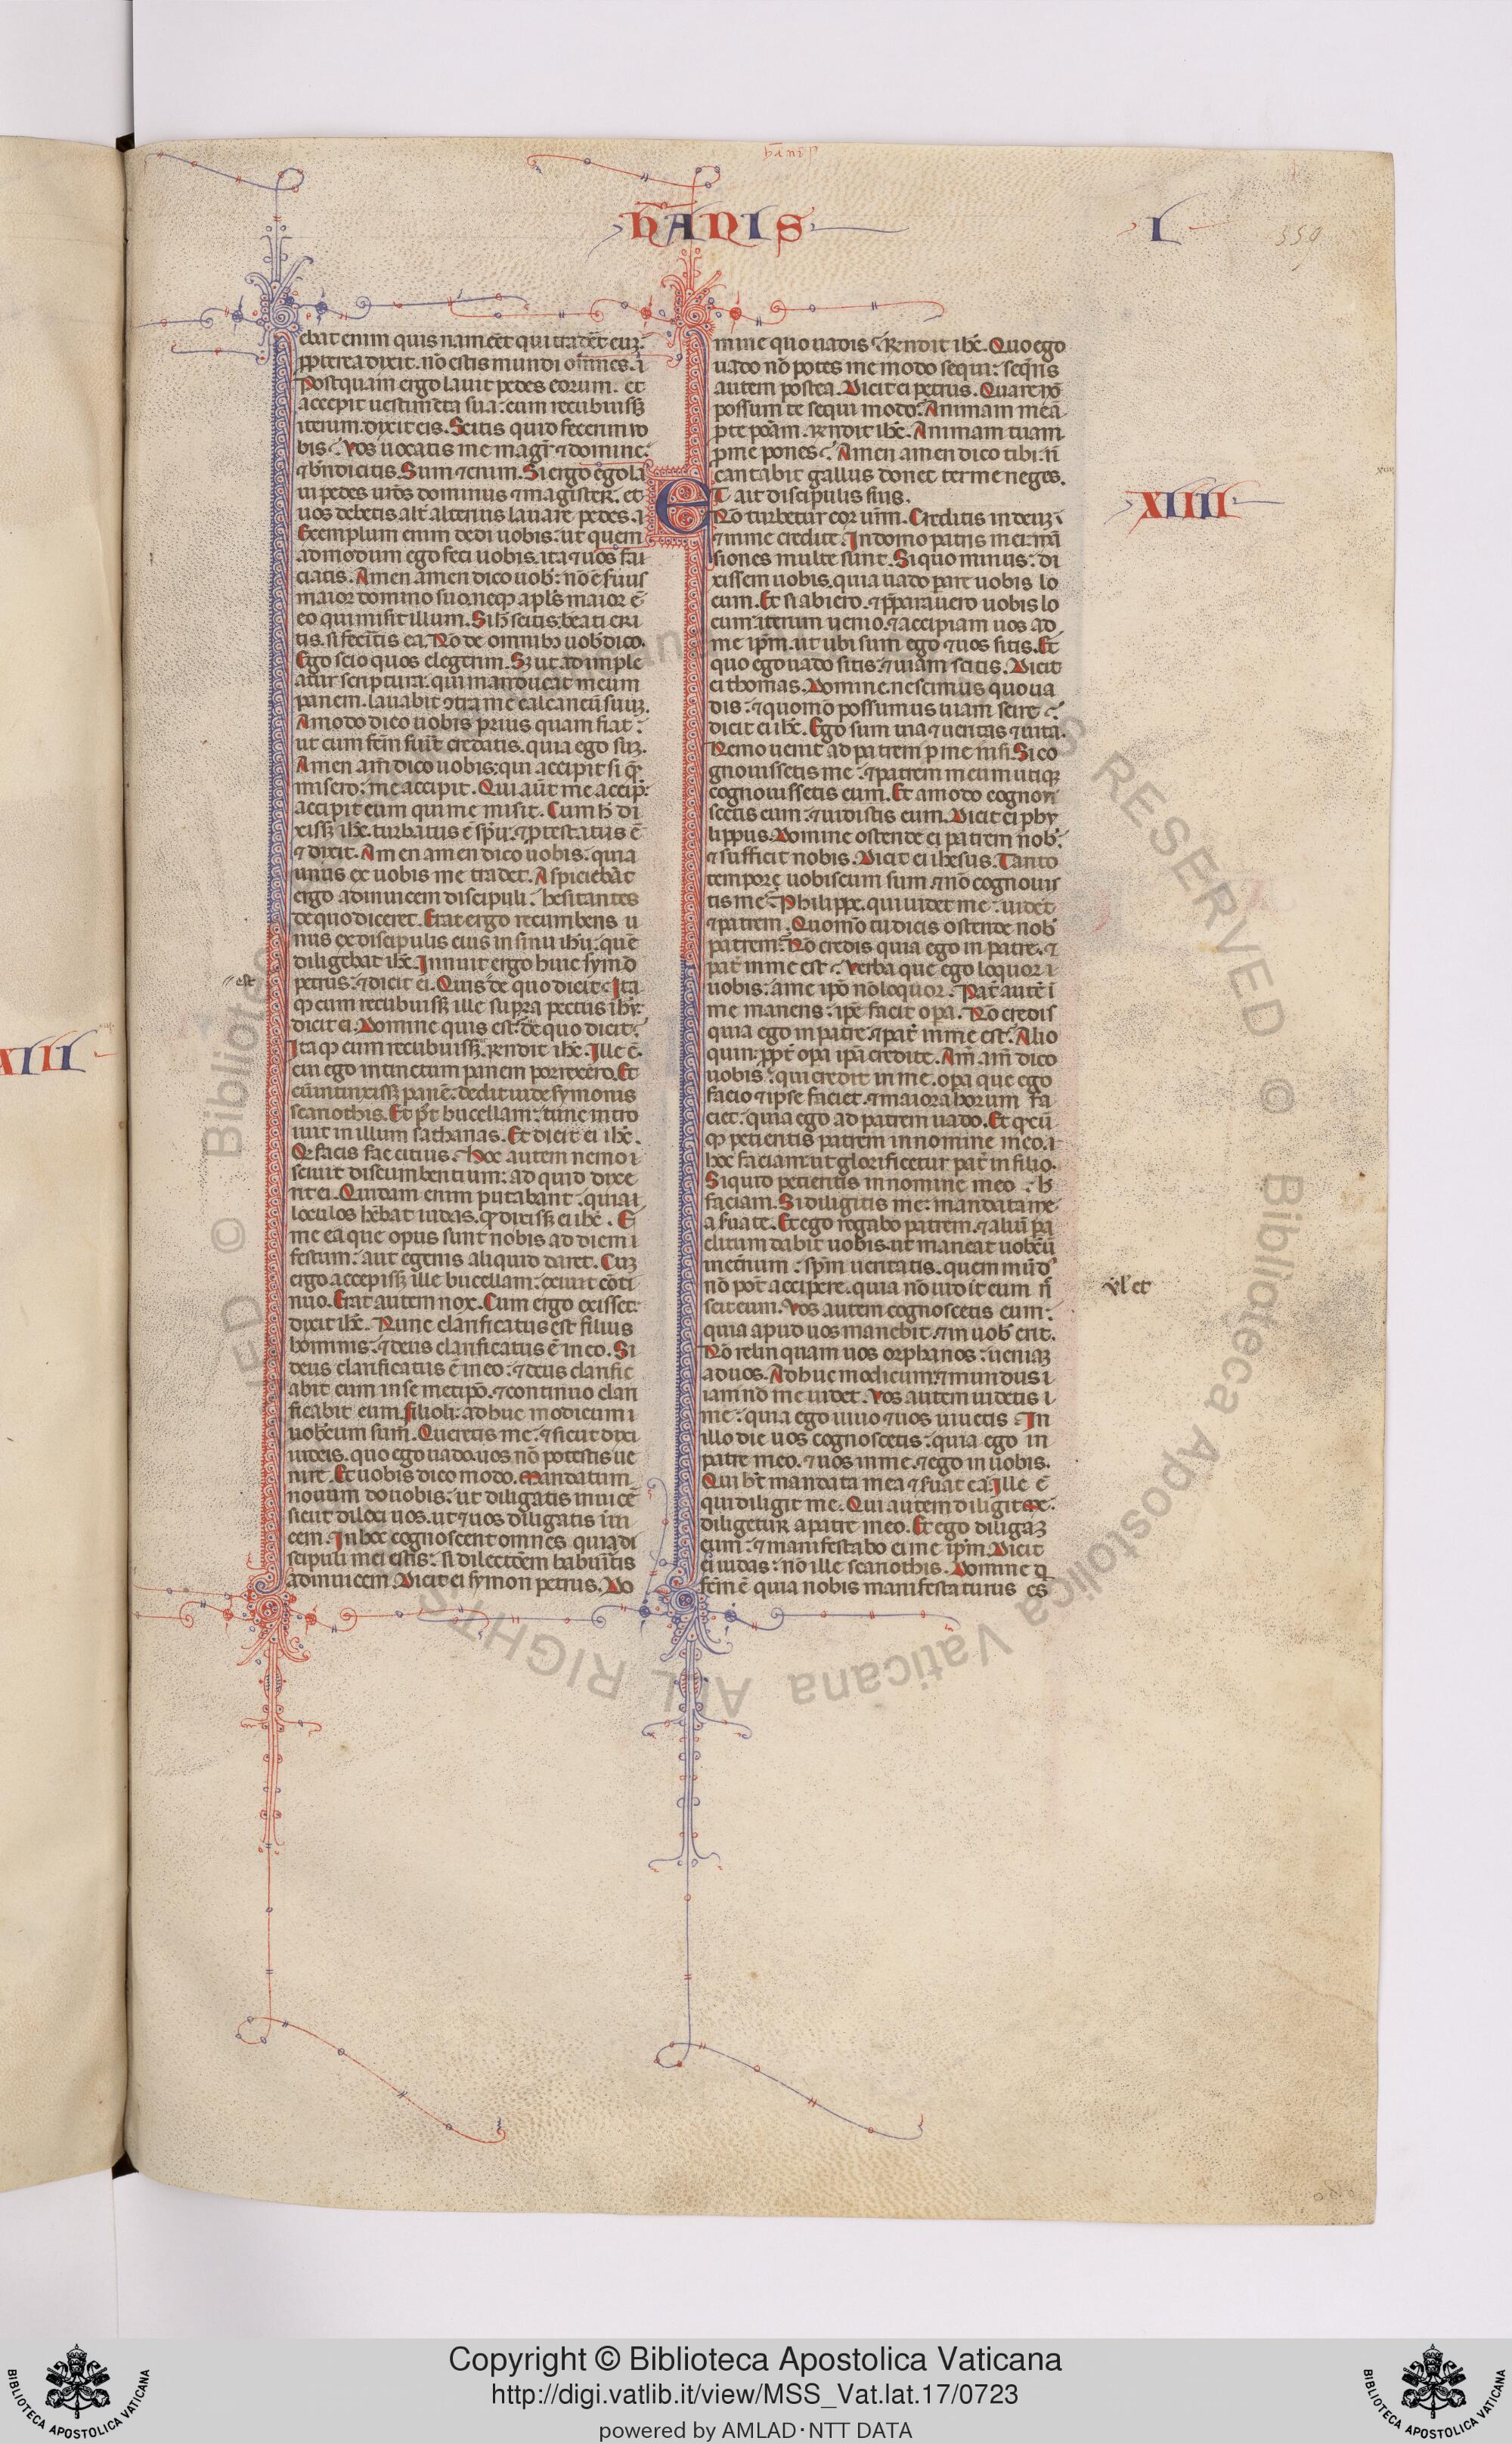 hanis
hANIS
L
559
ebat enim quis nam eēt qui tradēt eūz.
ppterea dixit. nō estis mundi omnes. i
Postquam ergo lauit pedes eorum. et
accepit uestimēta sua: cum recubuissz
iterum dixit eis. Scitis quid fecerim uo
bis. Vos uocatis me magr̄ ⁊ domine:
⁊ bn̄ dicitis. Sum ⁊ enim. Si ergo ego la
ui pedes ur̄os dominus ⁊ magister. et
uos debetis alt̄ alterius lauare pedes. a
Exemplum enim dedi uobis: ut quem
admodum ego feci uobis. ita ⁊ uos fai
ciatis. Amen amen dico uob: nō ē ſuus
maior domino suo. neqꝫ apl's maior ē
eo qui misit illum. Si h̄ scitis: beati eri
tis. si fecītis ea. Nō de omnibꝫ uob dico.
Ego scio quos elegerim. Sz ut adimple
atur scriptura. qui manducat meum
panem. lauabit ↄtra me calcaneū suūz.
Amodo dico uobis prius quam fiat:
ut cum fcm̄ fuīt credatis. quia ego suz.
Amen am̄ dico uobis: qui accipit si q̄
misero: me accipit. Qui aūt me accip:
accipit eum qui me misit. Cum h̄ di
xissz ihc̄. turbatus ē spu: ⁊ ptestatus ē
⁊ dixit. Amen amen dico uobis: quia
unus ex uobis me tradet. Aspiciebāt
ergo adinuicem discipuli: hesitantes
de quo diceret. Erat ergo recumbens u
nus ex discipulis eius in sinu ihu: quē
diligebat ihc̄. Innuit ergo huic symō
est
petrus: ⁊ dicit ei. Quis de quo dicit. Ita
qꝫ cum recubuissz ille supra pectus ihu:
dicit ei. Domine quis est: de quo dicit:
Itaqꝫ cum recubuissz. Rn̄dit ihc̄. Ille ē.
XIII
cui ego intinctum panem porrexero. Et
cū intinxissz panē: dedit iude symonis
scariothis. Et p̄t bucellam: tunc intro
iuit in illum sathanas. Et dicit ei ihc̄.
Qr facis fac citius. Hoc autem nemo i
sciuit discumbentium: ad quid dixe
rit ei. Quidam enim putabant: quia i
loculos hēbat iudas. qꝫ dixissz ei ihc̄. E
me ea que opus sunt nobis ad diem i
festum: aut egenis aliquid daret. Cuz
ergo accepissz ille bucellam: exiuit cōti
nuo. Erat autem nox. Cum ergo exisset:
dixit ihc̄. Nunc clarificatus est filius
hominis: ⁊ deus clarificatus ē in eo. Si
deus clarificatus ē in eo: ⁊ deus clarific
abit eum in se met ipō. ⁊ continuo clari
ficabit eum. Filioli: adhuc modicum i
uobcum sum. Queretis me: ⁊ sicut dixi
iudeis. quo ego uado. uos nō potestis ue
nire. Et uobis dico modo. Mandatum
nouum do uobis: ut diligatis inuicē
sicut dilexi uos. ut ⁊ uos diligatis īui
cem. In hoc cognoscent omnes quia di
scipuli mei estis: si dilectōem habuītis
adinuicem. Dicit ei symon petrus. Do
mine quo uadis. Rn̄dit ihc̄. Quo ego
uado nō potes me modo sequi: seq̄ris
autem postea. Dicit ei petrus. Quare nō
possum te sequi modo: Animam meā
p te pōam. Rn̄dit ihc̄. Animam tuam
p me pones. Amen amen dico tibi: n̄
cantabit gallus donec ter me neges.
xiiii
XIIII
ET ait discipulis suis.
Nō turbetur cor urm. Creditis in deuz i
⁊ in me credite. In domo patris mei: mā
siones multe sunt. Si quo minus: di
xissem uobis. quia uado pare uobis lo
cum. Et si abiero. ⁊ p̄parauero uobis lo
cum: iterum uenio. ⁊ accipiam uos ad
me ipm̄. ut ubi sum ego ⁊ uos sitis. Et
quo ego uado sitis: ⁊ uiam scitis. Dicit
ei thomas. Domine. nescimus quo ua
dis: ⁊ quomō possumus uiam scire.
dicit ei ihc̄. Ego sum uia ⁊ ueritas ⁊ uita.
Nemo uenit ad patrem p me nisi. Si co
gnouissetis me: ⁊ patrem meum utiqꝫ
cognouissetis eum. Et amodo cognon
scetis eum: ⁊ uidistis eum. Dicit ei phy
lippus. Domine ostende ei patrem nob:
⁊ sufficit nobis. Dicit ei ihesus. Tanto
tempore uobiscum sum. ⁊ nō cognouis
tis me: Philippe. qui uidet me: uidet
⁊ patrem. Quomō tu dicis ostende nob
patrem: Nō credis quia ego in patre. ⁊
pat̄ in me est. Verba que ego loquor i
uobis: a me ipō nō loquor. Pat̄ autē ī
me manens: ipē facit opa. Nō credis
quia ego in patre. ⁊ pat̄ in me est. Alio
quin: ppt̄ opa ipā credite. Am̄ am̄ dico
uobis: qui credit in me. opa que ego
facio ⁊ ipse faciet. ⁊ maiora horum fa
ciet: quia ego ad patrem uado. Et qcū
qꝫ petieritis patrem in nomine meo. i
hoc faciam: ut glorificetur pat̄ in filio.
Si quid petieritis in nomine meo: h̄
faciam. Si diligitis me: mandata me
a suate. Et ego rogabo patrem. ⁊ aliū pa
clitum dabit uobis. ut maneat uobcū
in et̄num: spm̄ ueritatis. quem mūd'
nō pot̄ accipere. quia nō uidit eum n̄
ul' et
scit eum. Vos autem cognoscetis eum:
quia apud uos manebit. ⁊ in uob erit.
Nō relinquam uos orphanos: ueniaz
ad uos. Adhuc modicum: ⁊ mundus i
iam nō me uidet. Vos autem uidetis i
me: quia ego uiuo ⁊ uos uiuetis. In
illo die uos cognoscetis: quia ego in
patre meo. ⁊ uos in me. ⁊ ego in uobis.
Qui h̄t mandata mea ⁊ suat ea. Ille ē
qui diligit me. Qui autem diligit me:
diligetur a patre meo. Et ego diligaz
eum: ⁊ manifestabo ei me ipm̄. Dicit
ei iudas: nō ille scariothis. Domine q
fcm̄ ē quia nobis manifestaturus es
Copyright © Biblioteca Apostolica Vaticana
http://digi.vatlib.it/view/MSS_Vat.lat.17/0723
powered by AMLAD·NTT DATA
BIBLIOTECA APOSTOLICA VATICANA
BIBLIOTECA APOSTOLICA VATICANA
© Biblioteca Apostolica Vaticana ALL RIGHTS RESERVED